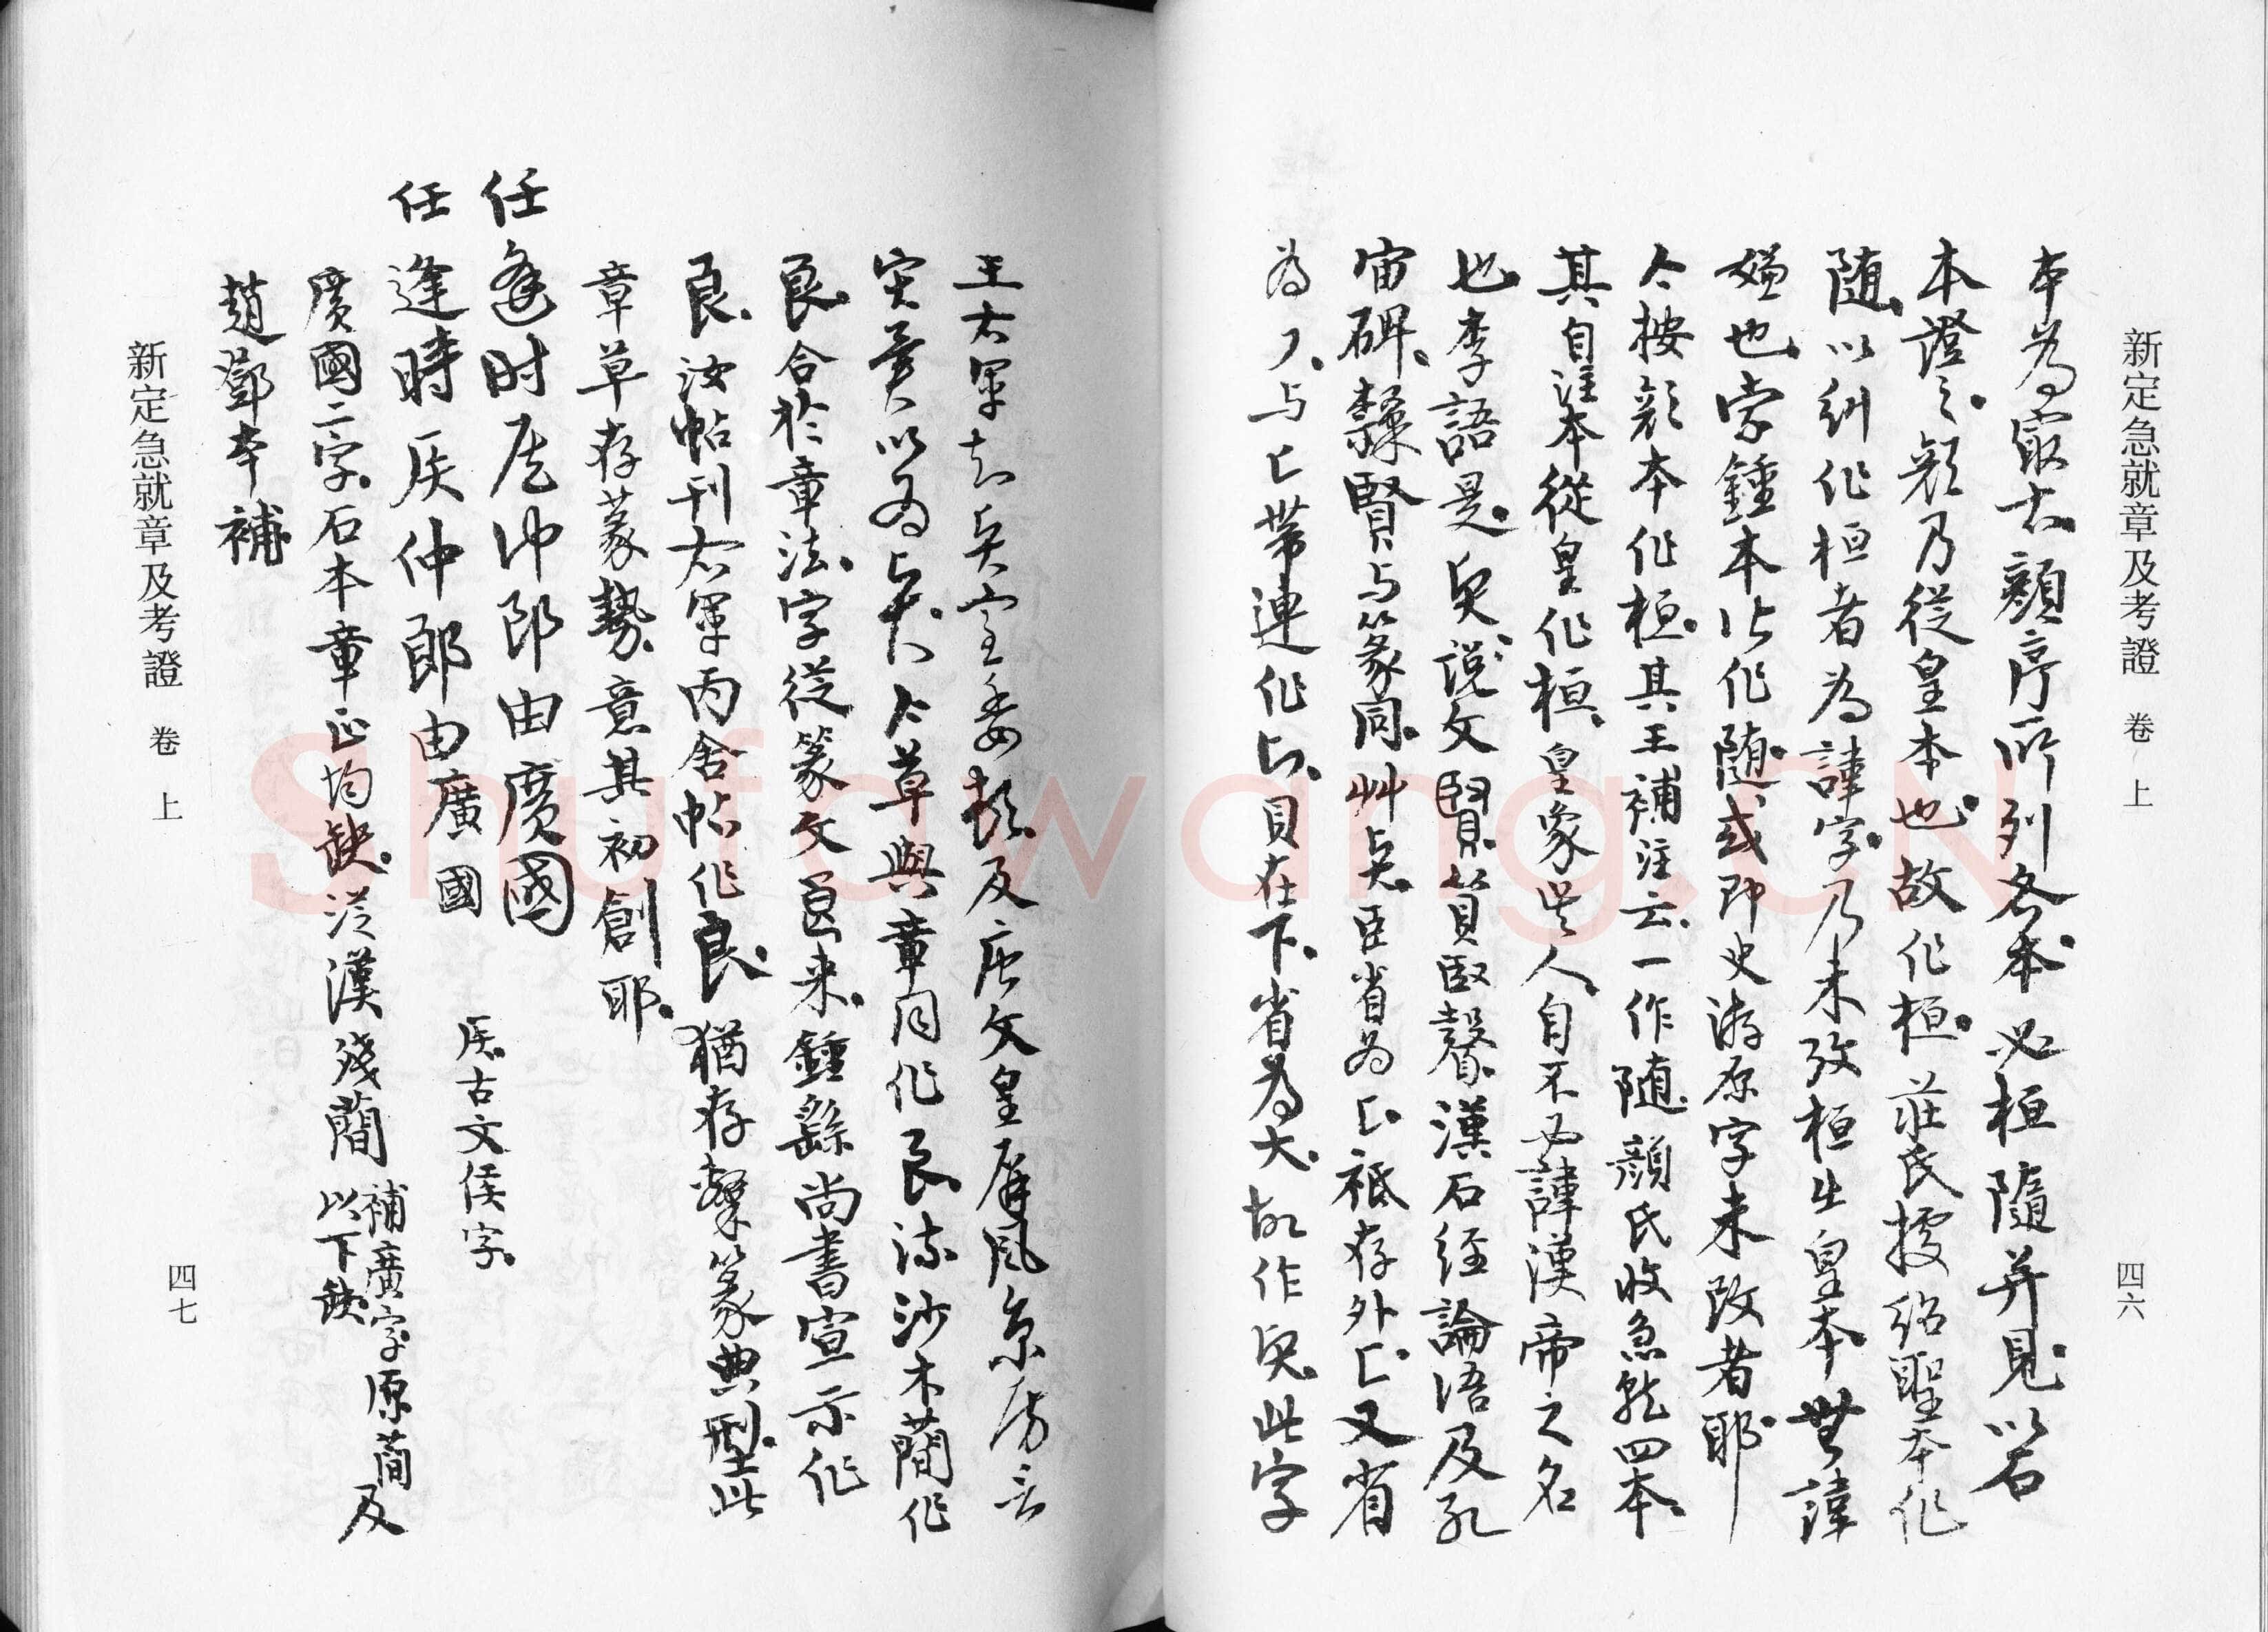 新定急就章及考證 卷上
四六
本為最古顏序所列各本必桓隨并見以石
本證之顏乃從皇本也故作桓莊氏據紹聖本作
隨以糾作桓者為諱字乃未攷桓生皇本無諱
嫌也索鍾本此作隨或即史游原字未改者耶
今按顏本作桓其王補注云一作隨顏氏收急就四本
其自注本從皇作桓皇象吳人自不必諱漢帝之名
也李語是 說文賢 漢石經論語及孔
宙碑 賢与篆同艸 臣省為 祗存外 又省
為 与 帶連作 貝在下省為大故作 此字
王右軍 及唐文皇屏風
實 以為 今草與章同作良流沙木簡作
良合於章法字從篆文 来鍾繇尚書宣示作
良汝帖刊右軍丙舍帖作良猶存 篆典型此
章草存篆勢意其初創耶
任逢时 仲郎由廣國
任逢時侯仲郎由廣國 古文侯字
廣國二字石本章正均缺從漢殘簡補廣字原簡及以下缺
趙鄧本補
新定急就章及考證 卷上
四七
Shufawang.CN